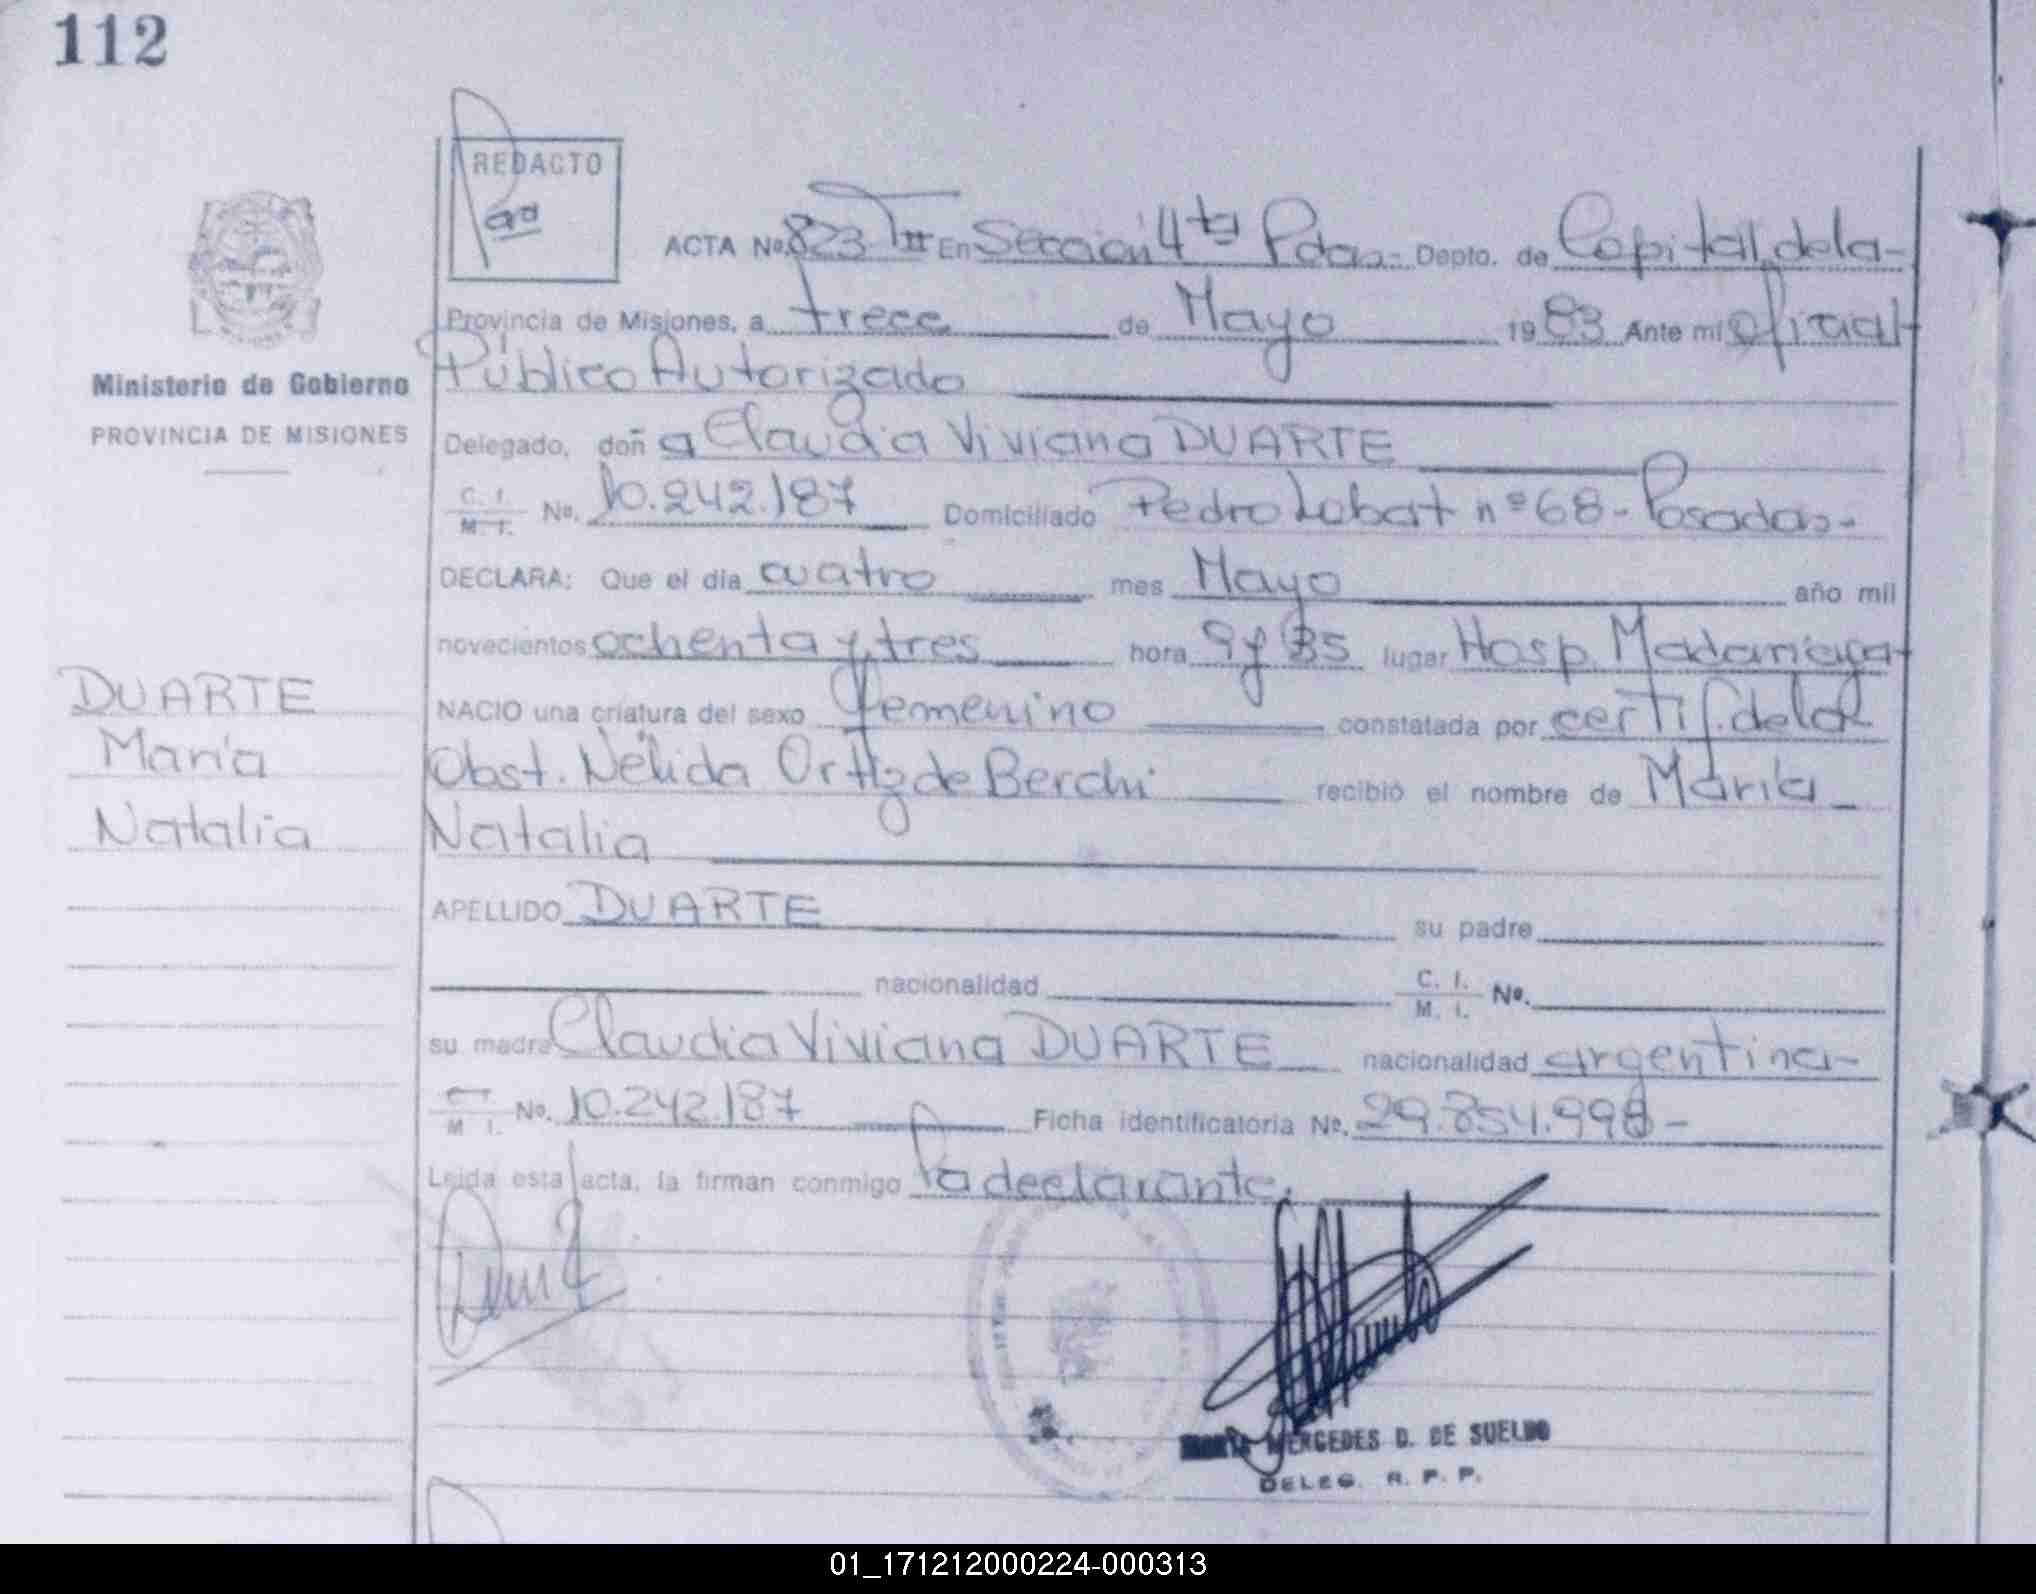 112
REDACTO
ACTA Nº 823 TºII En Sección 4ta Pdas.- Depto. de Capital, de la-
Provincia de Misiones, a trece de Mayo 1983 Ante mí Oficial
Ministerio de Gobierno
Público Autorizado
PROVINCIA DE MISIONES
Delegado, doña Claudia Viviana DUARTE
C. I. M. I. Nº. 10.242.187 Domiciliado Pedro Labat nº 68- Posadas-
DECLARA: Que el día cuatro mes Mayo año mil
novecientos ochenta y tres hora 9 y 35 lugar Hosp. Madariaga
DUARTE
NACIO una criatura del sexo femenino constatada por certif. de la
María
Obst. Nélida Ortiz de Berchi recibió el nombre de María
Natalia
Natalia
APELLIDO DUARTE su padre
nacionalidad C. I. M. I. Nº.
su madre Claudia Viviana DUARTE nacionalidad argentina-
M. I. Nº. 10.242.187 Ficha identificatoria Nº. 29.854.998-
Leída esta acta, la firman conmigo la declarante.
MERCEDES D. DE SUELDO
DELEG. R. P. P.
01_171212000224-000313